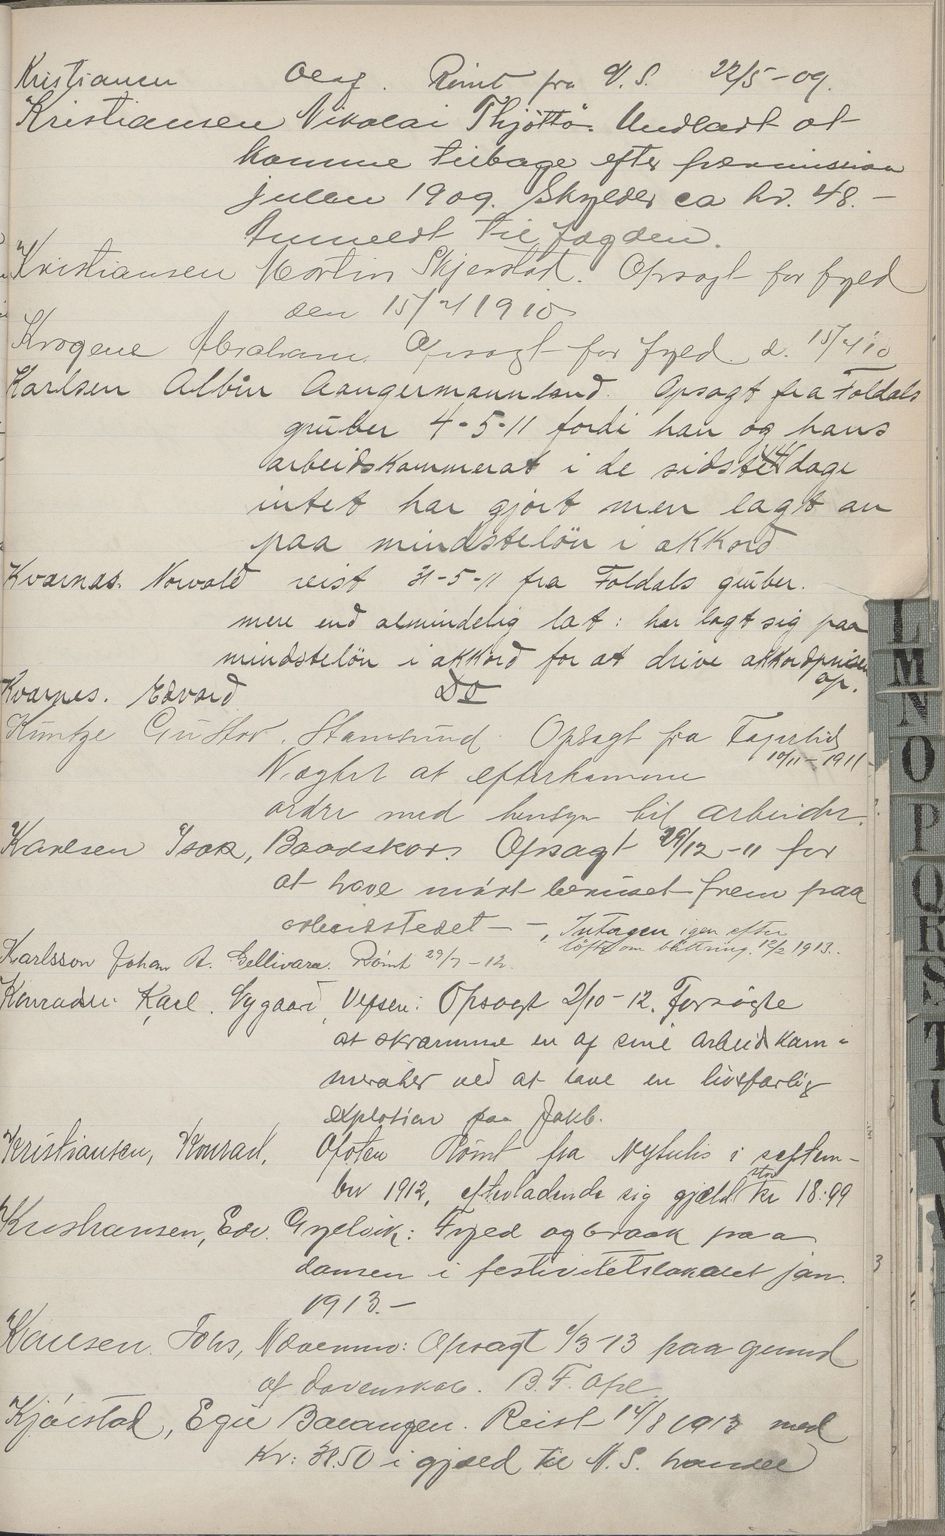 Kristiansen Olaf. Rømt fra V. S. 22/5-09.
Kristiansen Nikolai Thjøttø. Undladt at
komme tilbage efter permission
julen 1909. Skylder ca kr. 48.-
Anmeldt til fogden.
Kristiansen Martin Skjerstad. Opsagt for fyld
den 15/4 1910
Krogene Abraham Opsagt for fyld d. 15/4 10
Karlsen Albin Aangermannland. Opsagt fra Foldals
gruber 4-5-11 fordi han og hans
arbeidskammerat i de sidste dage
intet har gjort men lagt an
paa mindsteløn i akkord
Kvarnas. Norvald reist 31-5-11 fra Foldals gruber.
mere end almindelig lat: har lagt sig paa
mindsteløn i akkord for at drive akkordprisen
op.
Kvarnes. Edvard Do
Kuntze Gustav. Stamsund. Opsagt fra Fagerlid
10/11-1911
Nægtet at efterkomme
ordre med hensyn til arbeidet.
Karlsen Isak, Opsagt 29/12-11 for
at have møtt beruset frem paa
arbeidstedet - -, Intagen igen efter
löfte om bättring. 12/2 1913.
Karlsson Johan A. Gellivara. Rømt 29/7-12.
Konradsen Karl. Vefsen: Opsagt 2/10-12. Forsøgte
at skræmme en af sine arbeidskam-
merater ved at lave en livsfarlig
explosion paa Jakb.
Kristiansen, Konrad, Ofoten Rømt fra i septem-
ber 1912, efterladende sig gjæld stor kr 18:99
Kristiansen, Edv. Fyld og braak paa
dansen i festivitetslokalet jan.
1913.-
Johs, Opsagt 1/3-13 paa grund
af dovenskab. B. F. Opl.
Kjørstad, Egil Balangen. Reist 14/8 1913 med
kr: 31.50 i gjæld til N. S. handel
L
M
N
O
P
Q
R
S
T
U
V
3